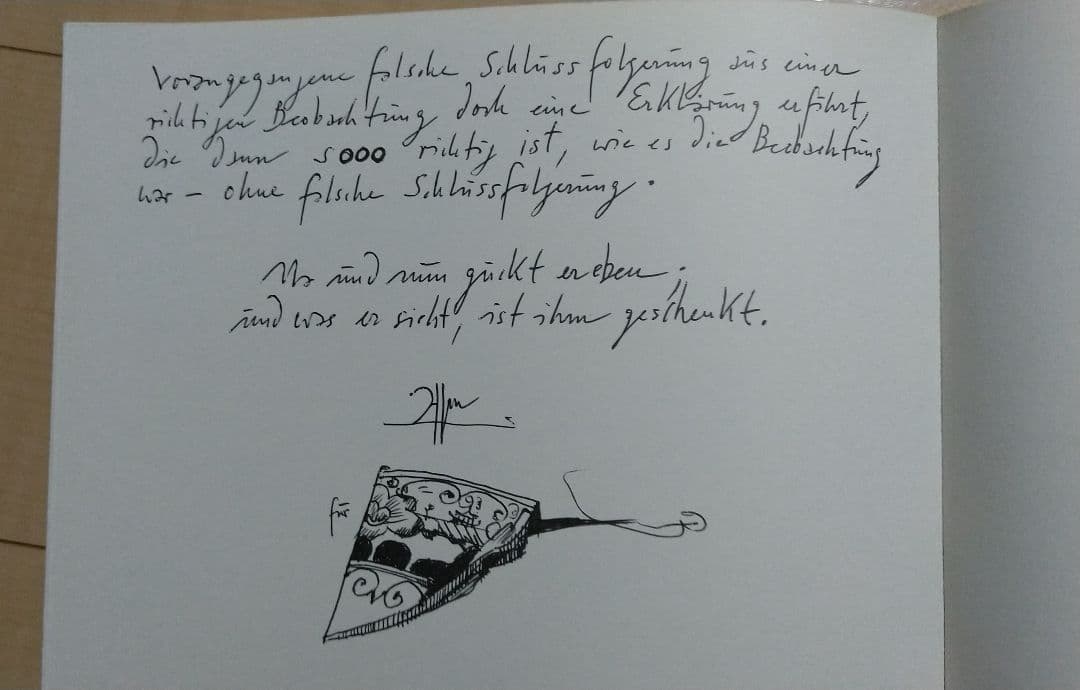 Vorangegangene falsche Schlussfolgerung aus einer
richtigen Beobachtung doch eine Erklärung erfährt,
die dann sooo richtig ist, wie es die Beobachtung
war – ohne falsche Schlussfolgerung.
und nun guckt er eben,
und was er sieht, ist ihm geschenkt.
für